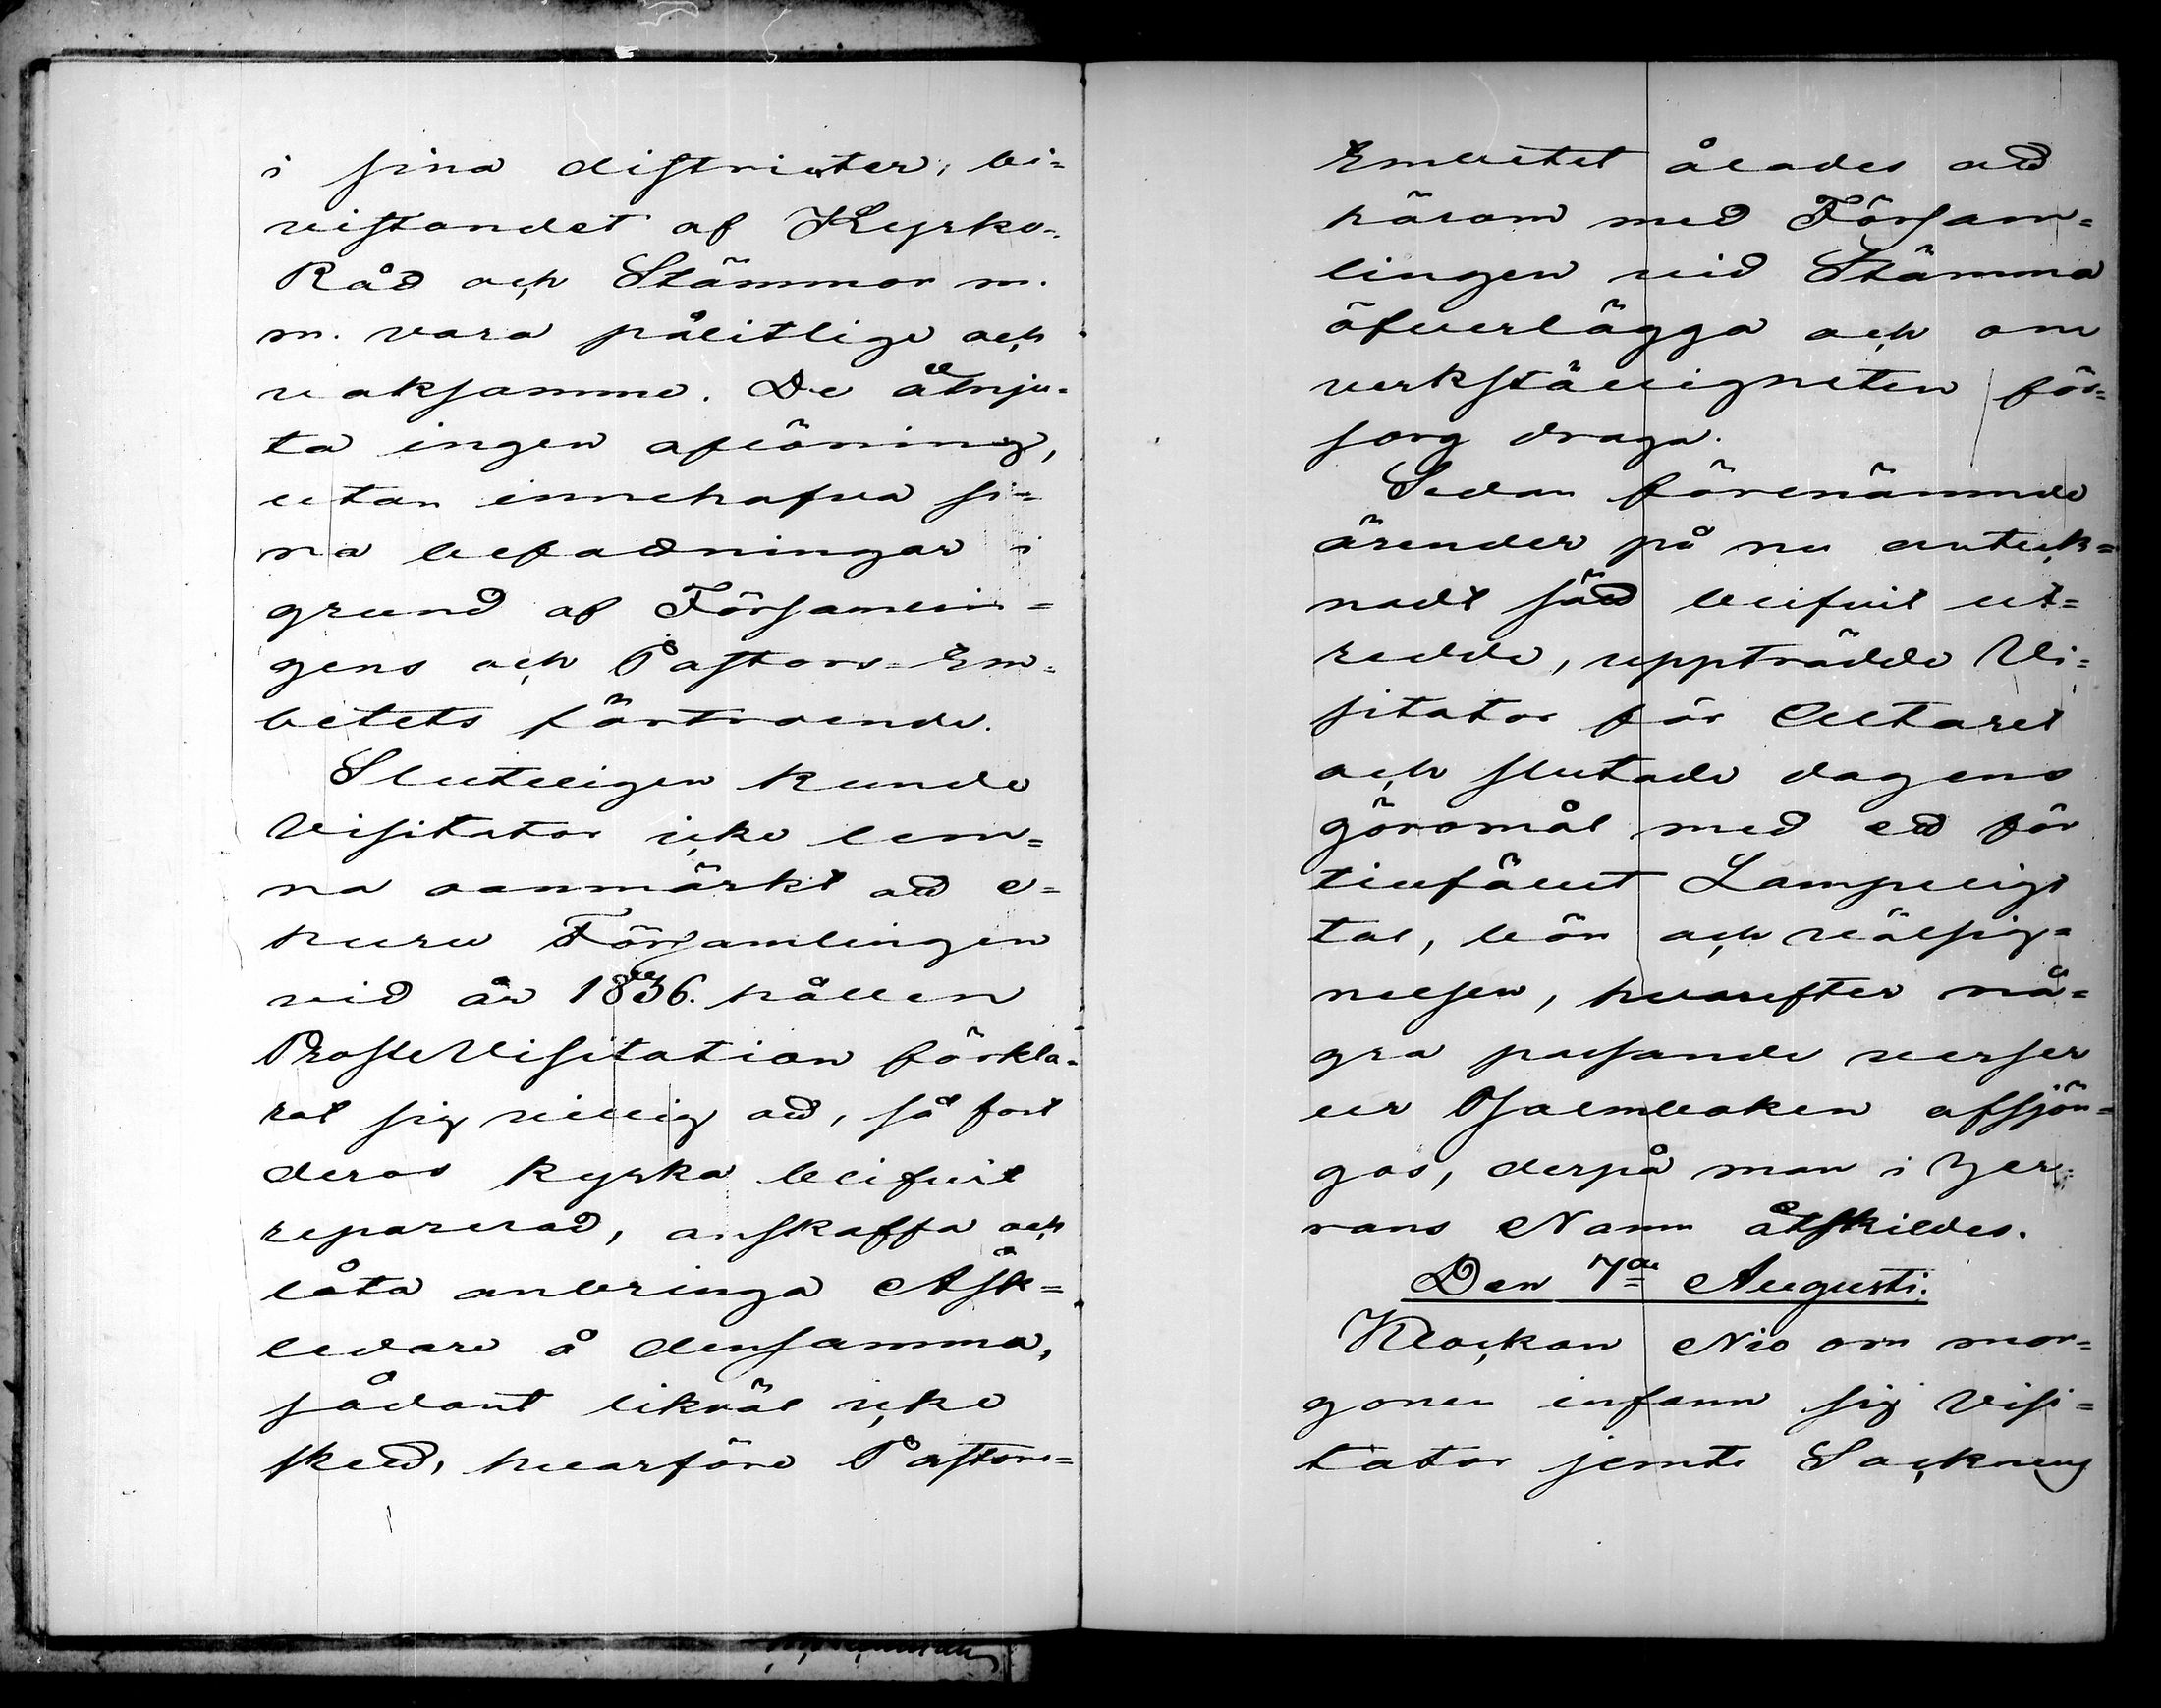 i sina districter, bi=
vistandet af Kyrko-
Råd och Stämmor m.
m. vara pålitlige och
vaksamme. De åtnju-
ta ingen aflöning,
utan innehafva si=
na befattningar i
grund af Församlin=
gens och Pastors-Em-
betets förtroende.
Slutligen kunde
Visitator icke lem=
na oanmärkt att e=
huru Församlingen
vid år 1836. hållen
ProsteVisitation förkla-
rat sig villig att, så fort
deras kyrka blifvit
reparerad, anskaffa och
låta anbringa Åsk=
ledare å densamma,
sådant likväl icke
skett, hvarföre Pastors=
Embetet ålades att
härom med Försam=
lingen vid Stämma
öfverlägga och om
verkställigheten för=
sorg draga.
Sedan förenämnde
ärender på nu anteck=
nadt sätt blifvit ut=
redde, uppträdde Vi=
sitator för Altaret
och slutade dagens
göromål med ett för
tillfället Lämpeligt
tal, bön och välsig=
nelsen, hvarefter nå=
gra passande verser
ur Psalmboken afsjön=
gos, derpå man i Her=
rans Namn åtskildes.
Den 7de Augusti.
Klockan Nio om mor=
gonen infann sig Visi=
tator jemte Sockneng